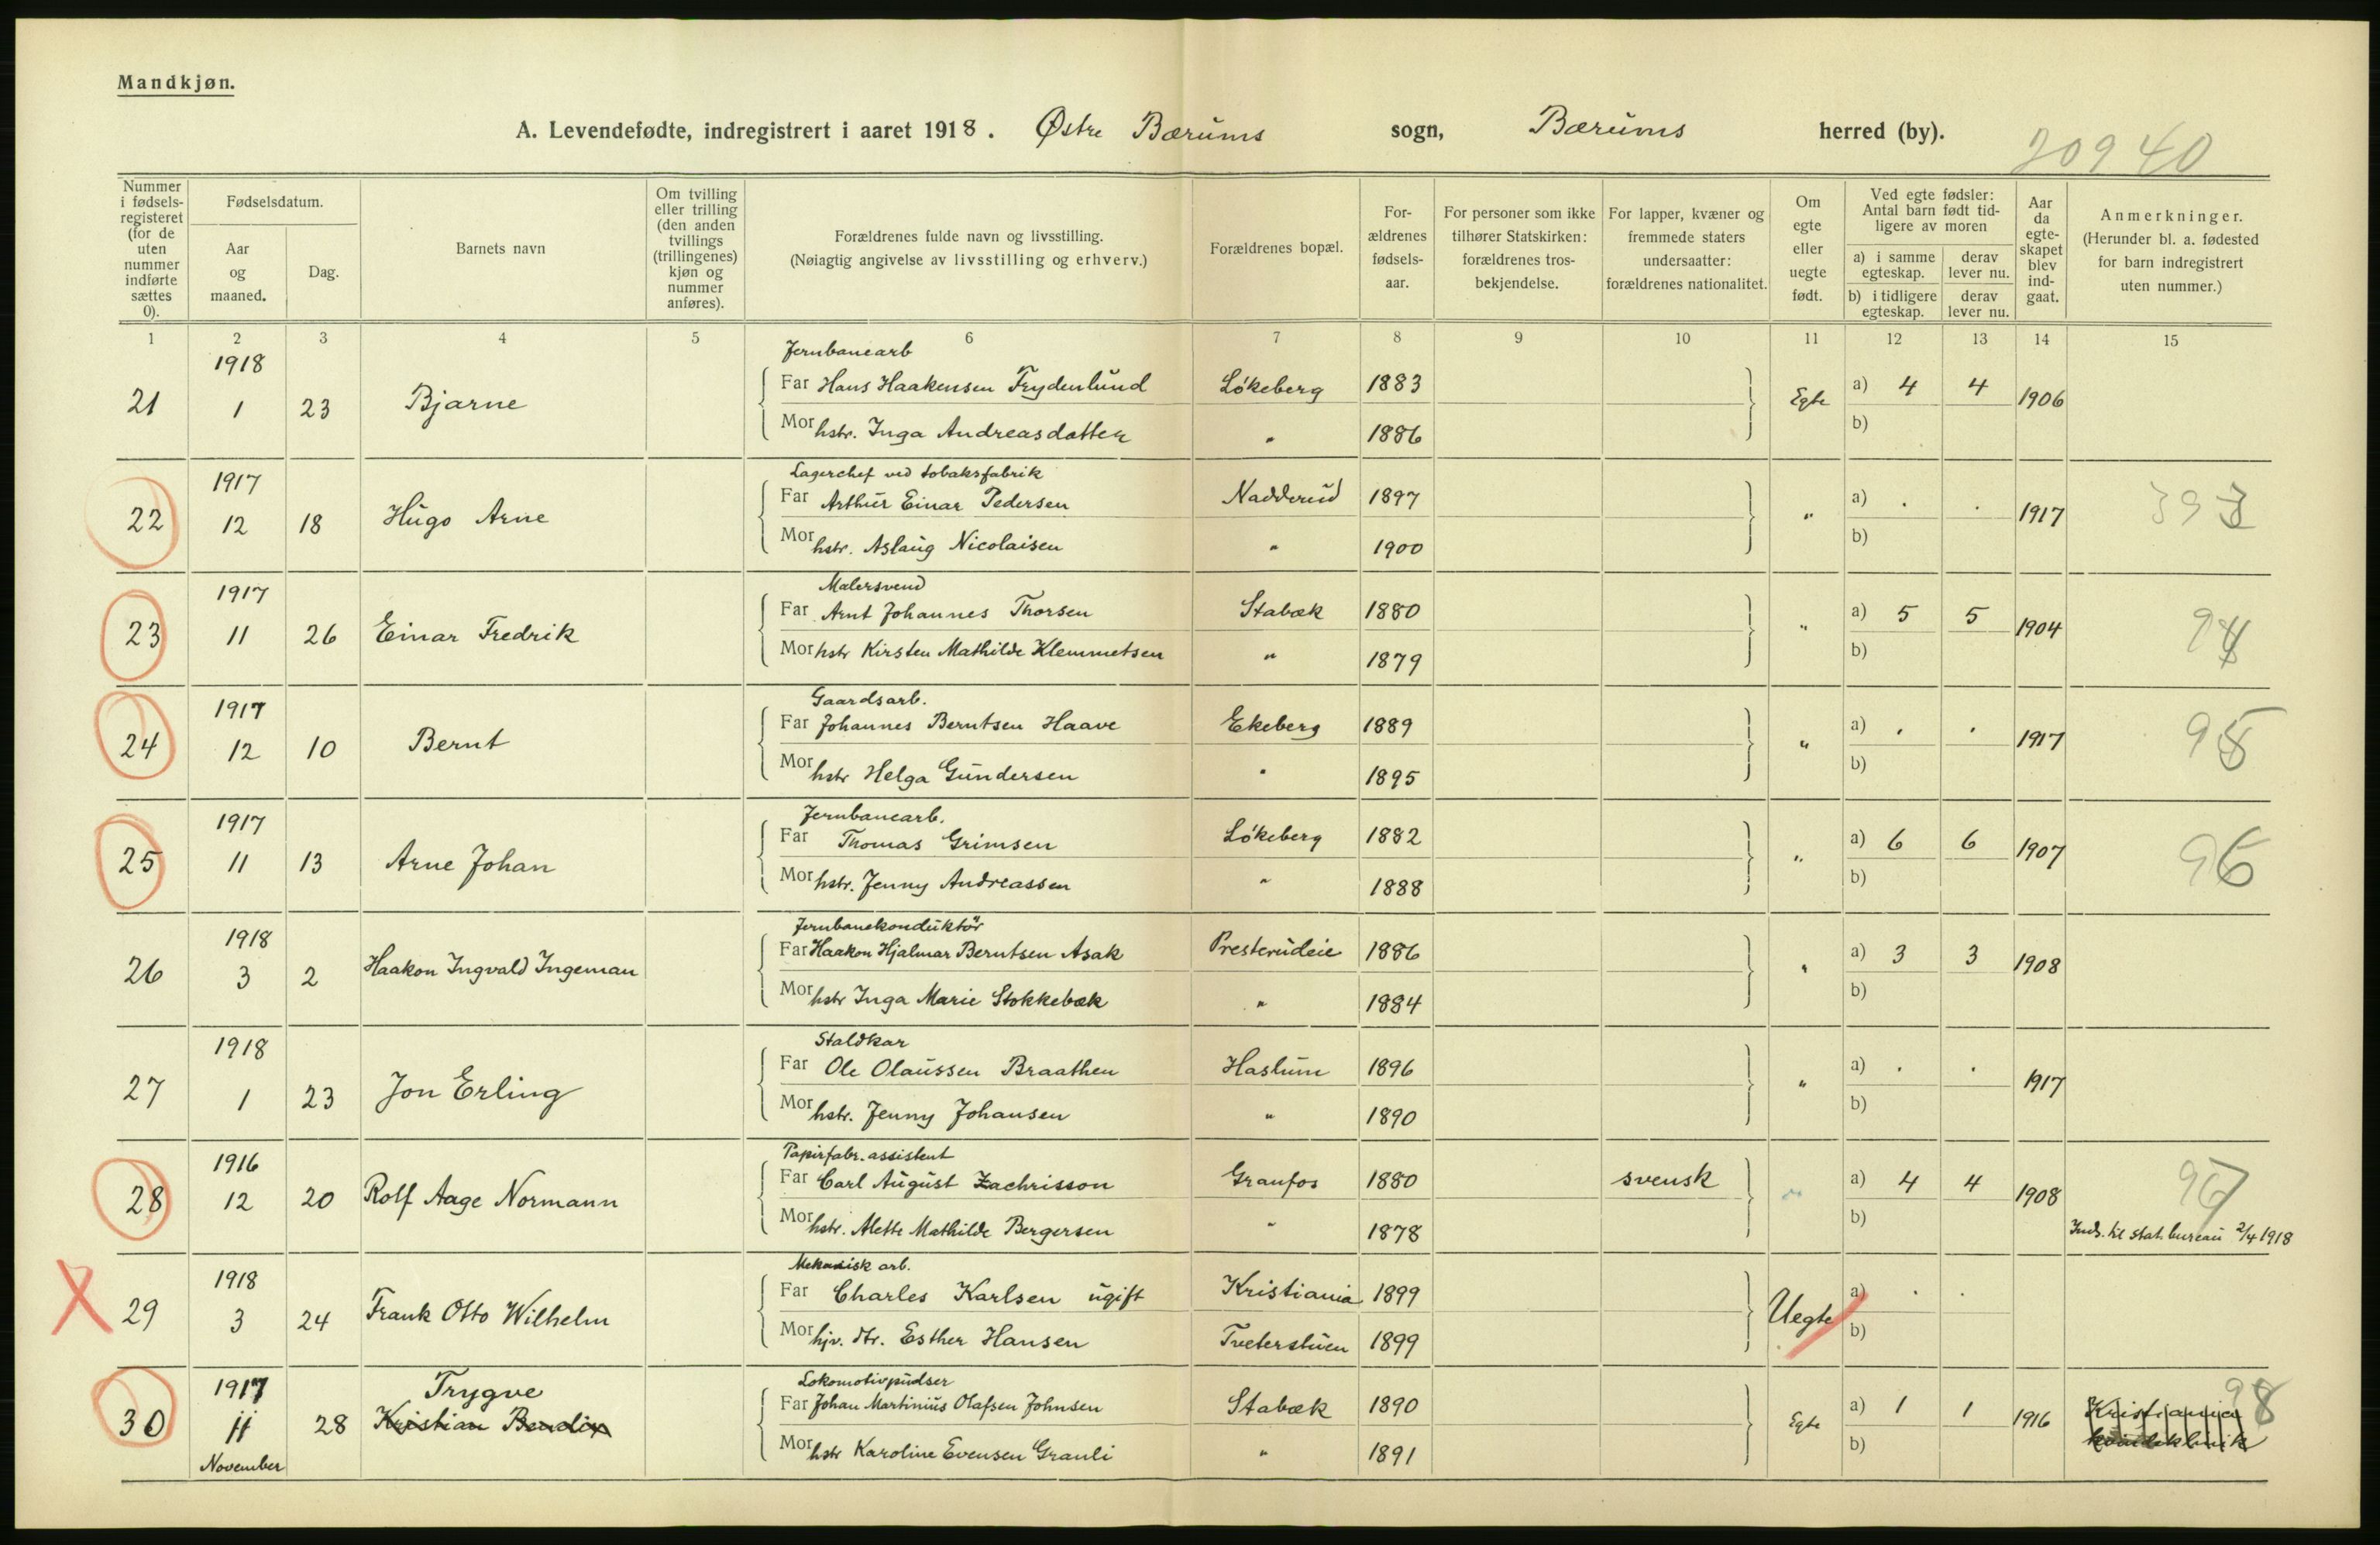 Mandkjøn.
A. Levendefødte, indregistrert i aaret 1918. Østre Bærums sogn, Bærums herred (by). 20940
Nummer i fødselsregisteret (for de uten nummer indførte sættes 0).
Fødselsdatum.
Aar og maaned.
Dag.
Barnets navn
Om tvilling eller trilling (den anden tvillings (trillingenes) kjøn og nummer anføres).
Forældrenes fulde navn og livsstilling.
(Nøiagtig angivelse av livsstilling og erhverv.)
Forældrenes bopæl.
Forældrenes fødselsaar.
For personer som ikke tilhører Statskirken: forældrenes trosbekjendelse.
For lapper, kvæner og fremmede staters undersaatter: forældrenes nationalitet.
Om egte eller uegte født.
Ved egte fødsler: Antal barn født tidligere av moren
a) i samme egteskap. derav lever nu.
b) i tidligere egteskap. derav lever nu.
Aar da egteskapet blev indgaat.
Anmerkninger.
(Herunder bl. a. fødested for barn indregistrert uten nummer.)
1 2 3 4 5 6 7 8 9 10 11 12 13 14 15
1918 Jernbanearb
21 1 23 Bjarne Far Hans Haakensen Frydenlund Løkeberg 1883 Egte a) 4 4 1906
Mor hstr. Inga Andreasdatter " 1886 b)
1917 Lagerchef ved tobaksfabrik
22 12 18 Hugo Arne Far Arthur Einar Pedersen Nadderud 1897 " a) . . 1917 393
Mor hstr. Aslaug Nicolaisen " 1900 b)
1917 Malersvend
23 11 26 Einar Fredrik Far Arnt Johannes Thorsen Stabæk 1880 " a) 5 5 1904 94
Mor hstr Kirsten Mathilde Klemmetsen " 1879 b)
1917 Gaardsarb.
24 12 10 Bernt Far Johannes Berntsen Haave Ekeberg 1889 " a) . . 1917 95
Mor hstr Helga Gundersen " 1895 b)
1917 Jernbanearb.
25 11 13 Arne Johan Far Thomas Grimsen Løkeberg 1882 " a) 6 6 1907 96
Mor hstr. Jenny Andreassen " 1888 b)
1918 Jernbanekonduktør
26 3 2 Haakon Ingvald Ingeman Far Haakon Hjalmar Berntsen Asak Presterudeie 1886 " a) 3 3 1908
Mor hstr Inga Marie Stokkebæk " 1884 b)
1918 Staldkar
27 1 23 Jon Erling Far Ole Olaussen Braathen Haslum 1896 " a) . . 1917
Mor hstr. Jenny Johansen " 1890 b)
1916 Papirfabr. assistent
28 12 20 Rolf Aage Normann Far Carl August Zachrisson Granfos 1880 svensk " a) 4 4 1908 97
Mor hstr. Alette Mathilde Bergersen " 1878 b) Inds. til stat. bureau 2/4 1918
1918 Mekanisk arb.
X 29 3 24 Frank Otto Wilhelm Far Charles Karlsen ugift Kristiania 1899 Uegte a) . .
Mor hjv. dtr. Esther Hansen Tveterstuen 1899 b)
1917 Trygve Lokomotivpudser
30 11 28 Kristian Bendix Far Johan Martinius Olafsen Johnsen Stabæk 1890 Egte a) 1 1 1916 Kristiania 98
November Mor hstr Karoline Evensen Granli " 1891 b) kvindeklinik